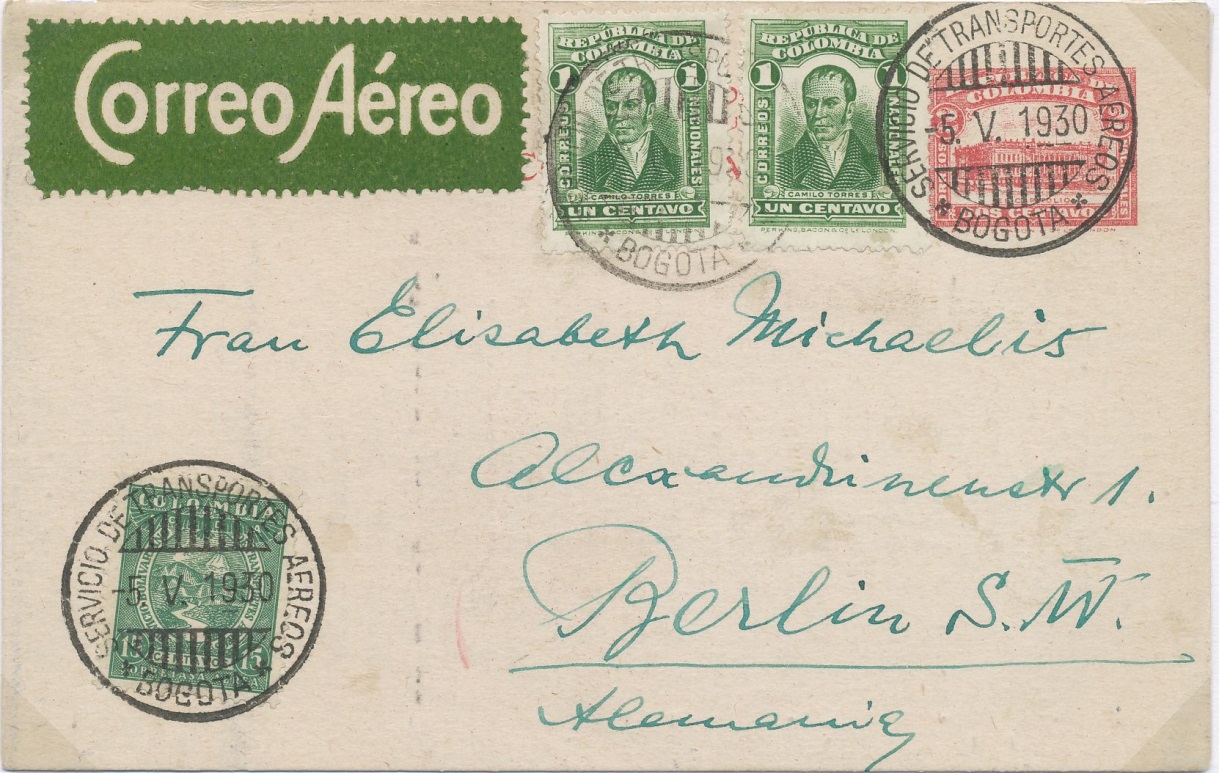 Correo Aéreo
REPÚBLICA DE
COLOMBIA
1 1
CORREOS NACIONALES
CAMILO TORRES
UN CENTAVO
REPÚBLICA DE
COLOMBIA
1 1
CORREOS
CAMILO TORRES
UN CENTAVO
PERKINS, BACON & CO LD LONDON
BOGOTA
COLOMBIA
CENTAVOS
SERVICIO DE TRANSPORTES AEREOS
-5. V. 1930
BOGOTA
Frau Elisabeth Michaelis
Alexandrinenstr 1.
Berlin S.W.
Alemania
COLOMBIA
15 15
SERVICIO DE TRANSPORTES AEREOS
-5. V. 1930
BOGOTA